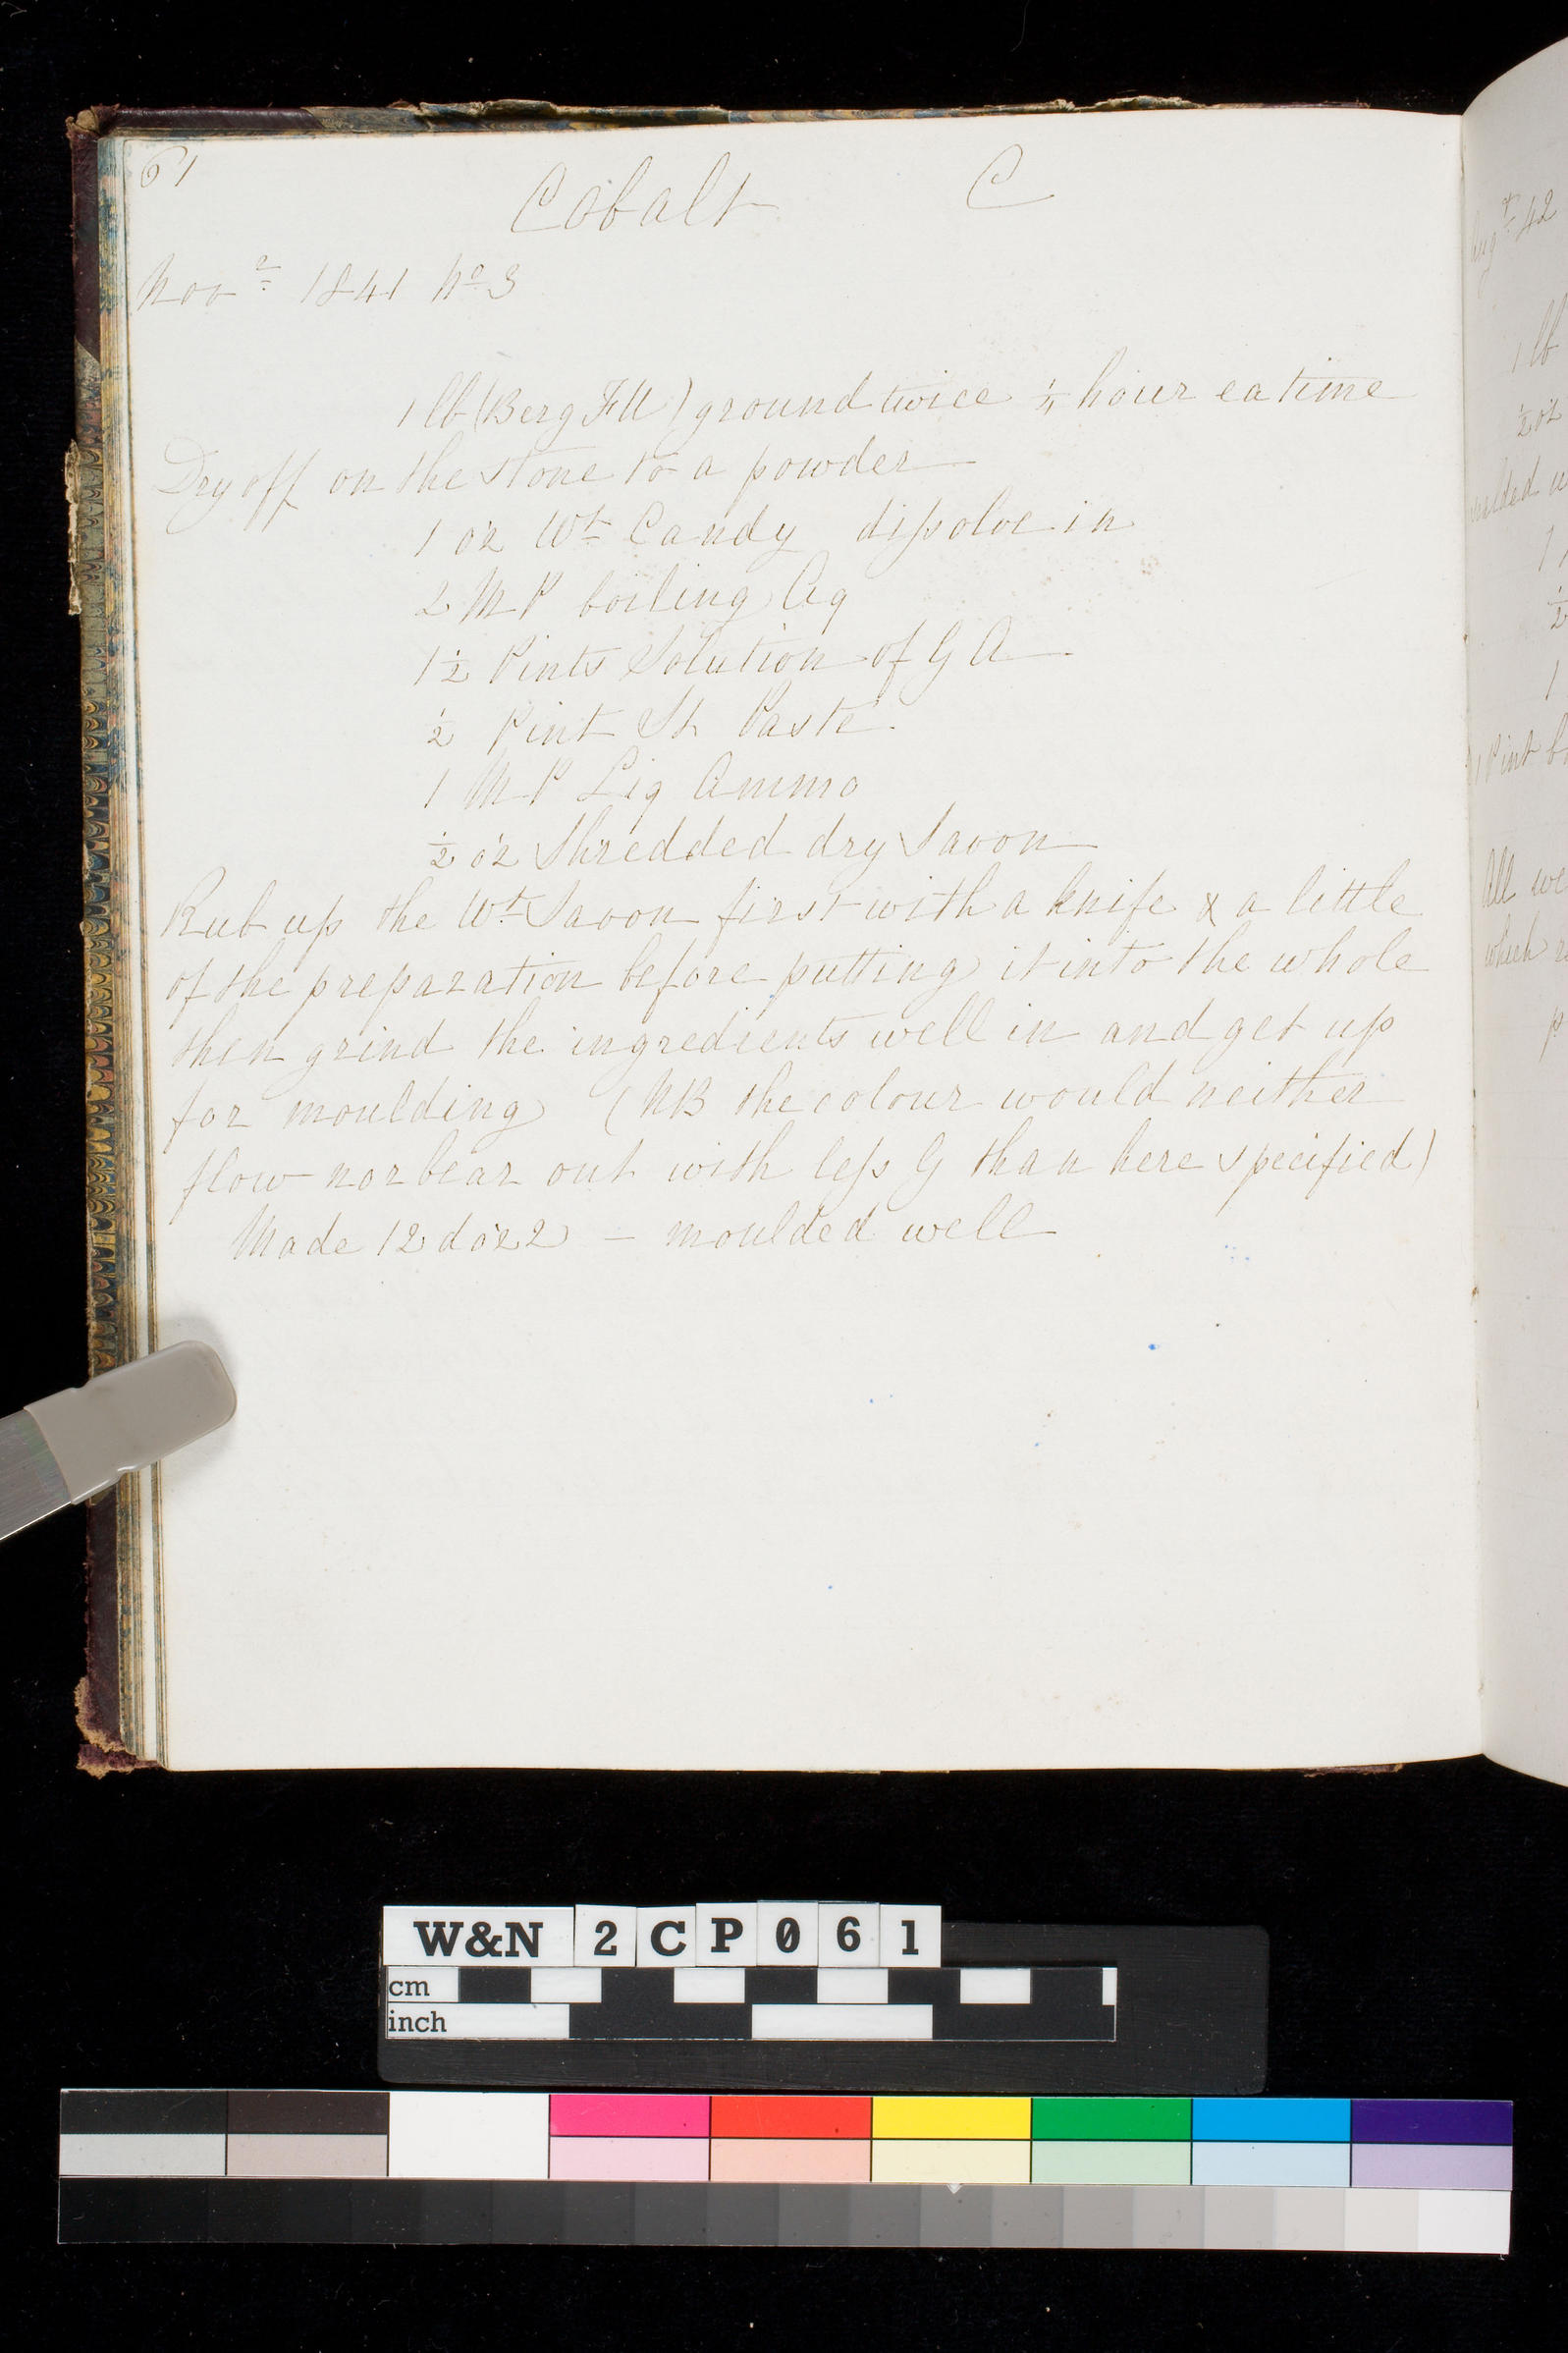 61
Cobalt C
Nov.r 1841 No 3
1 lb (Berg ) ground twice 1/4 hour ea time
Dry off on the stone to a powder
1 oz Wt Candy dissolve in
2 M P boiling Aq
1 1/2 Pints Solution of G A
1/2 Pint St Paste
1 M P Liq Ammo
1/2 oz Shredded dry Savon
Rub up the Wt Savon first with a knife & a little
of the preparation before putting it into the whole
then grind the ingredients well in and get up
for moulding (NB the colour would neither
flow nor bear out with less G than here specified)
Made 12 dozz – moulded well
W&N 2CP061
cm
inch
42
1 lb
1/2 oz
1/2
1
1 Pint
All we
which